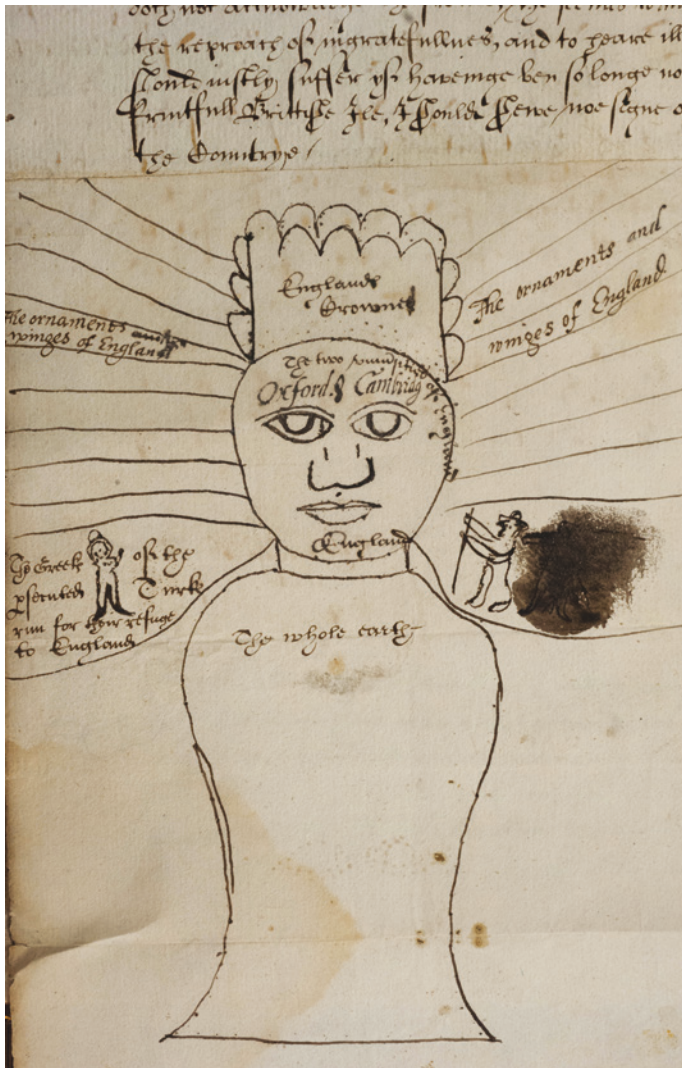 the reproach of ingratefullnes, and to heare ill
should iustly suffer yf haveinge ben so longe no
fruitfull Brittishe Ile, I should shewe noe signe o
the Countrye
Englands
Crowne
The ornaments and
winges of England
The ornaments and
winges of England
The two
Oxford & Cambridg
of England
England
of the
Greek
persecuted
Turke
run for their refuge
to England
The whole earth